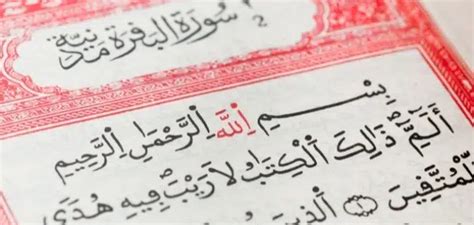 سورة البقرة مدنية
2
بِسْمِ اللَّهِ الرَّحْمَٰنِ الرَّحِيمِ
أَلَمِّ ذَٰلِكَ الْكِتَٰبُ لَا رَيْبَ فِيهِ هُدًى
لِّلْمُتَّقِينَ ① الَّذِينَ